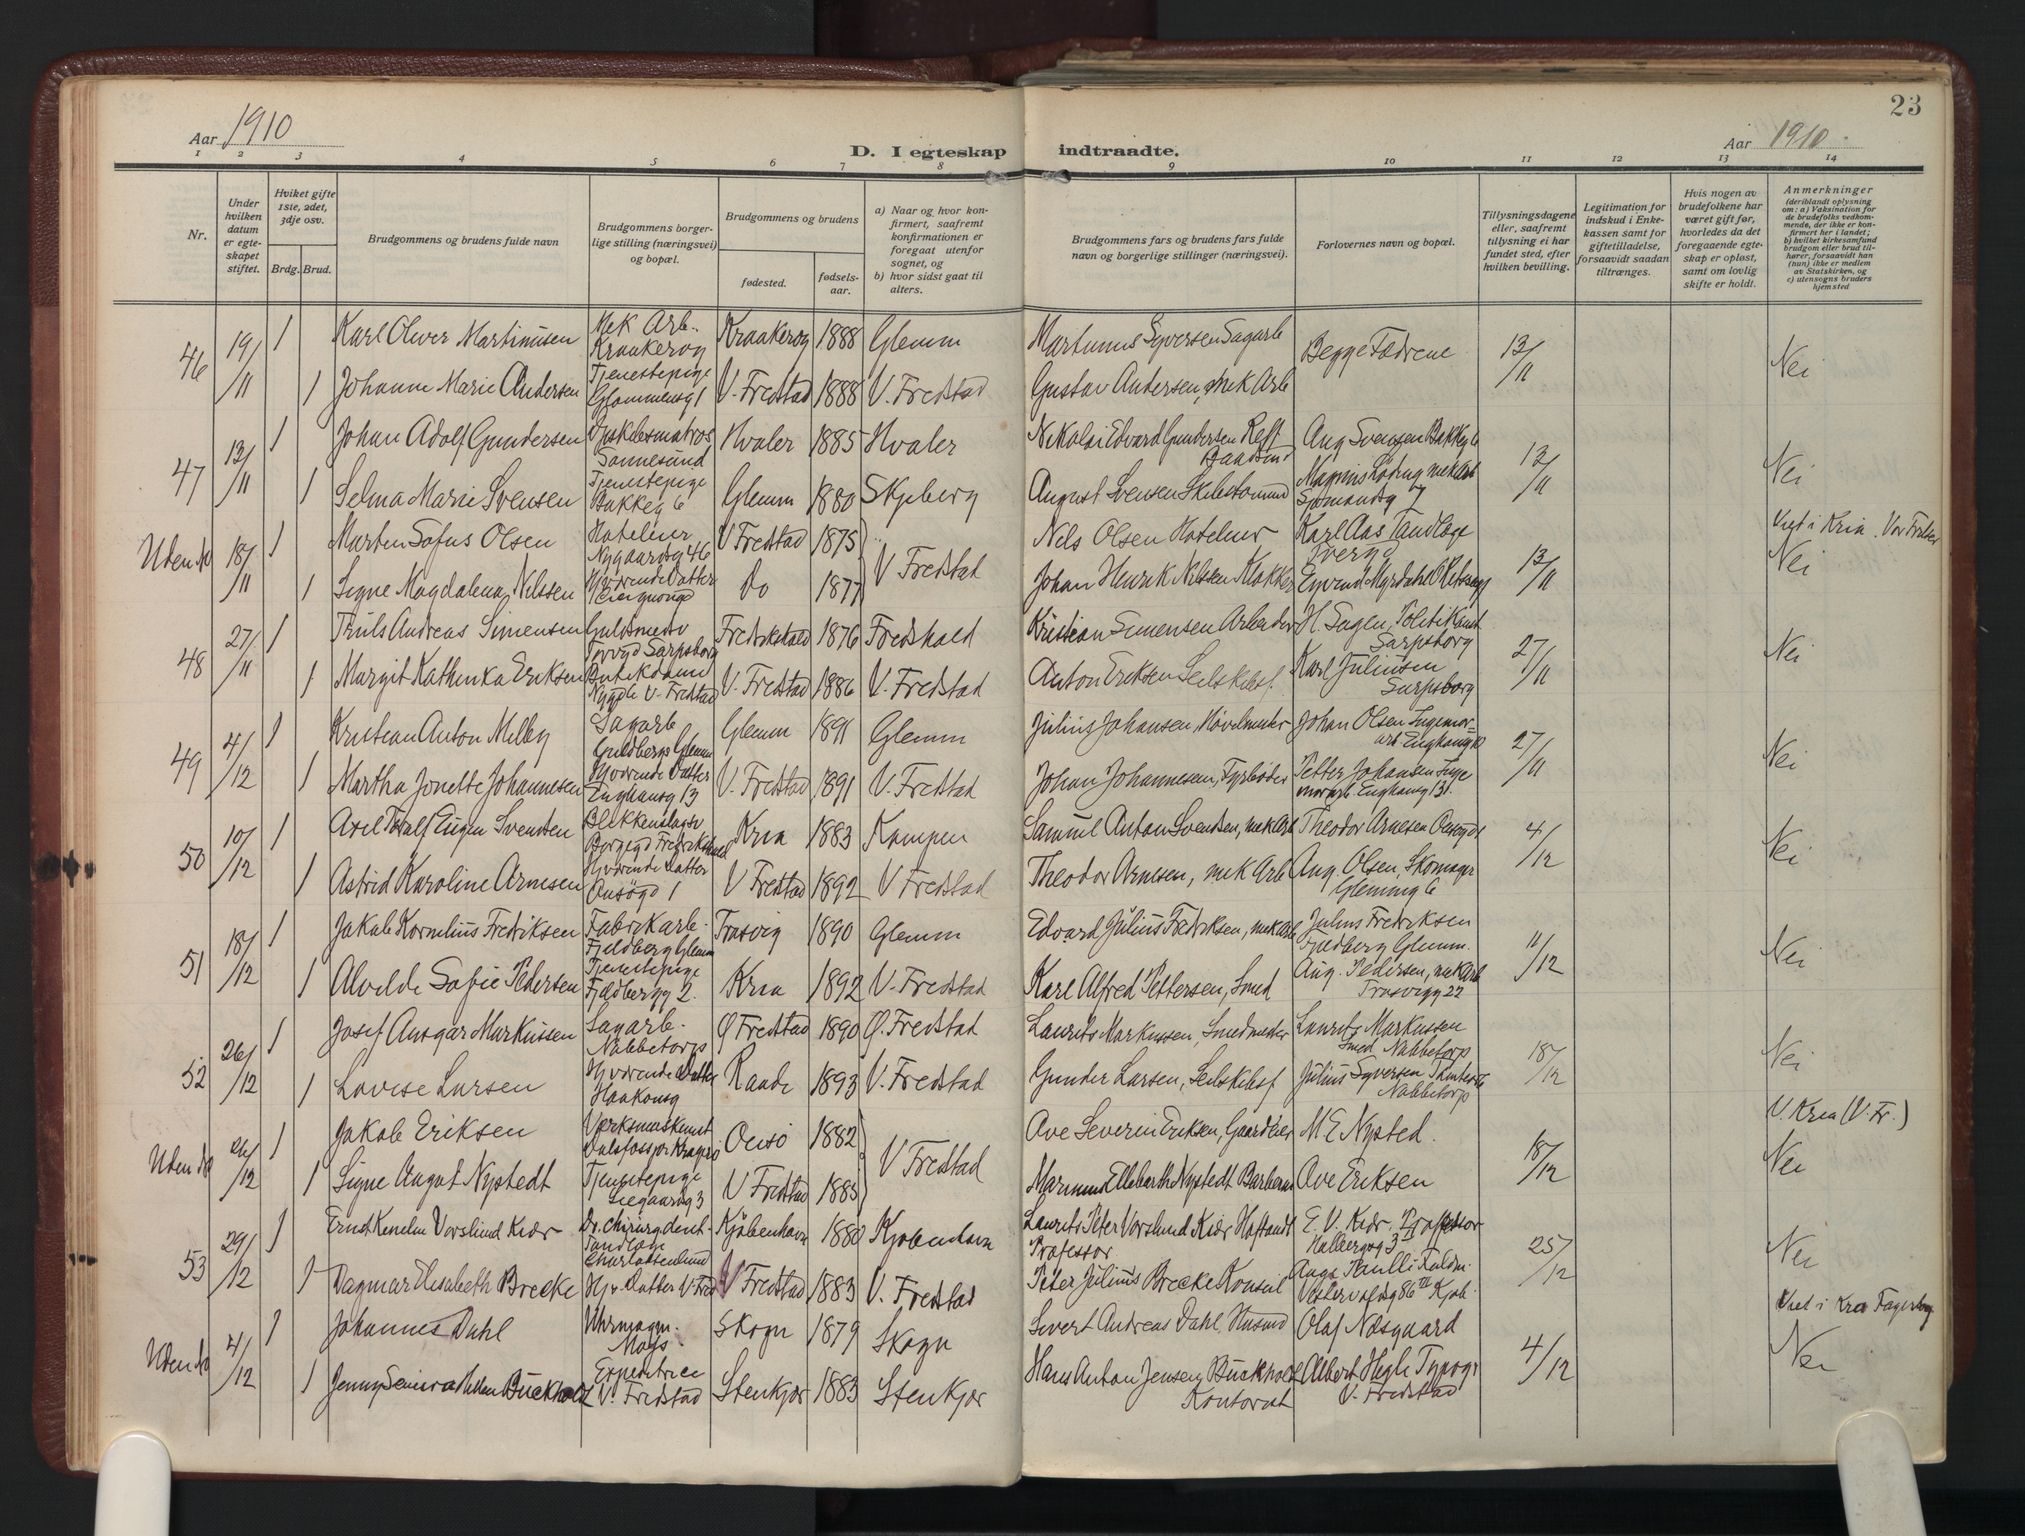 23
Aar 1910
D. I egteskap indtraadte.
Aar 1910
1 2 3 4 5 6 7 8 9 10 11 12 13 14
Nr.
Under hvilken datum er egteskapet stiftet.
Hviket gifte 1ste, 2det, 3dje osv.
Brdg. Brud.
Brudgommens og brudens fulde navn
Brudgommens borgerlige stilling (næringsvei) og bopæl.
Brudgommens og brudens
fødested.
fødselsaar.
a) Naar og hvor konfirmert, saafremt konfirmationen er foregaat utenfor sognet, og
b) hvor sidst gaat til alters.
Brudgommens fars og brudens fars fulde navn og borgerlige stillinger (næringsvei).
Forlovernes navn og bopæl.
Tillysningsdagene eller, saafremt tillysning ei har fundet sted, efter hvilken bevilling.
Legitimation for indskud i Enkekassen samt for giftetilladelse, forsaavidt saadan tiltrænges.
Hvis nogen av brudefolkene har været gift før, hvorledes da det foregaaende egteskap er opløst, samt om lovlig skifte er holdt.
Anmerkninger (deriblandt oplysning om: a) Vaksination for de brudefolks vedkommende, der ikke er konfirmert her i landet; b) hvilket kirkesamfund brudgom eller brud tilhører, forsaavidt han (hun) ikke er medlem av Statskirken, og c) utensogns bruders hjemsted
46 19/11 1 Karl Oliver Martinusen Mek Arb. Kraakerøy Kraakerøy 1888 Glemm Martinus Syversen Sagarb Begge Fædrene 13/11 Nei
1 Johanne Marie Andersen Tjenestepige Glommensg 1 V. Fredstad 1888 V. Fredstad Gustav Andersen, Mek Arb
47 13/11 1 Johan Adolf Gundersen Hvaler 1885 Hvaler Nikolai Edvard Gundersen Aug Svensen Bakkeg 6 13/11 Nei
1 Selma Marie Svensen Tjenestepige Bakkeg 6 Glemm 1880 Skjeberg August Svensen Magnus mek Arb Sømandsg 7
Uden do 18/11 1 Marten Sofus Olsen Hoteleier Nygaardsg 46 V Fredstad 1875 V Fredstad Nels Olsen Hoteleier Karl Aas Tandlæge 13/11 Viet i Kria. Vor Frelser Nei
1 Signe Magdalena Nilssen Hjværende Datter Do 1877 Johan Henrik Nilsen Klokker Eyvind Myrdahl
48 27/11 1 Truls Andreas Simensen Guldsmed Torvgd Sarpsborg Fredrikshald 1876 Fredshald Kristian Simensen Arbeider H. Sagen, Politikonst Sarpsborg 27/11 Nei
1 Margit Kathinka Eriksen V. Fredstad V. Fredstad 1886 V. Fredstad Anton Eriksen Seilskibsf. Karl Juliusen Sarpsborg
49 4/12 1 Kristian Anton Melby Sagarb Guldbergs Glemm Glemm 1891 Glemm Julius Johansen, Høvelmester Johan Olsen 27/11 Nei
1 Martha Jonette Johannesen Hjværende Datter Enghausg 13 V. Fredstad 1891 V. Fredstad Johan Johannesen, Fyrbøder Petter Johansen Enghausg 131.
50 10/12 1 Axel Eugen Svendsen Blikkenslager Borgegd Fredrikshald Kria 1883 Kampen Samuel Anton Svendsen, mek Arb Theodor Arnesen 4/12 Nei
1 Astrid Karoline Arnesen Hjværende Datter V Fredstad 1892 V Fredstad Theodor Arnesen, mek Arb Aug. Olsen, Skomagr Glemmg 6
51 18/12 1 Jakob Kornelius Fredriksen Fabrikarb. Fjeldberg Glemm Trosvig 1890 Glemm Edvard Julius Fredriksen, mek Arb Julius Fredriksen Fjeldberg Glemm. 11/12 Nei
1 Alvilde Sofie Pedersen Tjenestepige Fjeldbergg 2. Kria 1892 V. Fredstad Karl Alfred Pettersen, Smed Aug. Pedersen, mek Arb Trosvigg 22
52 26/12 1 Josef Ansgar Markussen Sagarb. Nabbetorp Ø Fredstad 1890 Ø. Fredstad Laurits Markussen, Smedmester Laurits Markussen Smed Nabbetorp 18/12 Nei
1 Lovise Larsen Hjværende Datter Haakonsg Raade 1893 V. Fredstad Gunder Larsen, Seilskibsf Julius Syversen Nabbetorp
Uden do 26/12 1 Jakob Eriksen Onsø 1882 V Fredstad Ave Severin Eriksen, Gaardeier M E Nysted. 18/12 V. Kria (V. Fr.) Nei
1 Signe Nystedt Tjenestepige Liegaardsg 3 V Fredstad 1885 Nystedt Barberer Ave Eriksen
53 29/12 1 Ernst Kenelm Vorslund Kiær Dr. chirurg dent. Tandlæge Charlottenlund Kjøbenhavn 1880 Kjøbenhavn Laurits Peter Vorslund Kiær Professor E. V. Kiær. Professor 25/12 Nei
1 Dagmar Elisabeth Brecke Hjv Datter V Fred V Fredstad 1883 V. Fredstad Peter Julius Brecke Konsul Vestervoldg 86 III Kjøb.
Uden do 4/12 1 Johannes Dahl Uhrmagr. Moss Skogn 1879 Skogn Sivert Andreas Dahl, Husmd Olaf Næsgaard 4/12 Viet i Kria Fagerborg Nei
1 Jenny Buckholt Expeditrice V. Fredstad Stenkjær 1883 Stenkjær Hans Anton Jensen Buckholt Kontorist Albert Høgh Typogr V. Fredstad